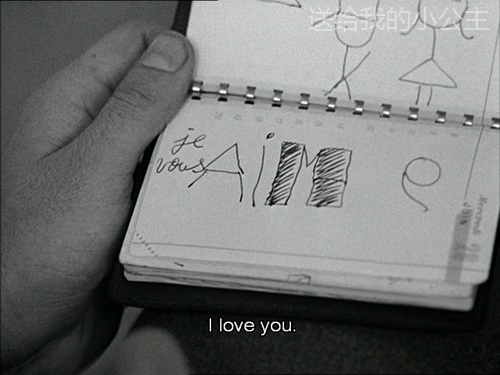 送给我的小公主
je
vous AiM e
Mercredi
I love you.